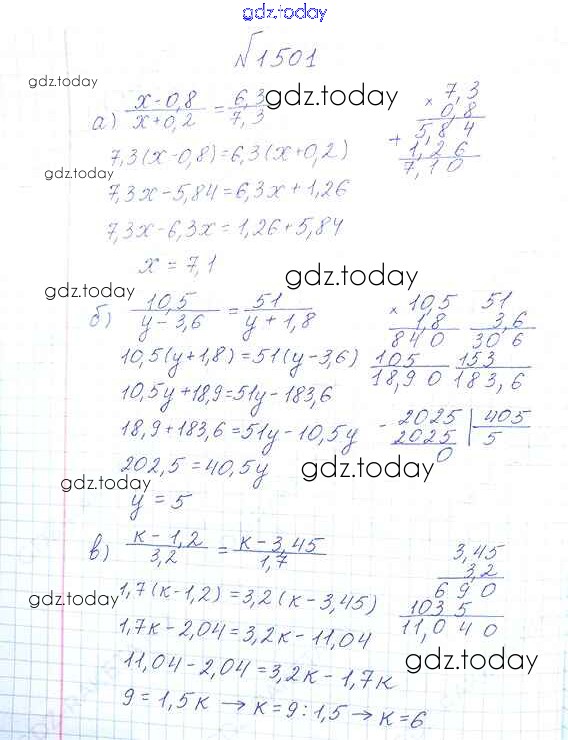 gdz.today
№1501
gdz.today
а) (x-0,8)/(x+0,2) = 6,3/7,3
gdz.today
× 7,3
0,8
+ 5,84
1,26
7,10
7,3(x-0,8)=6,3(x+0,2)
gdz.today
7,3x-5,84=6,3x+1,26
7,3x-6,3x=1,26+5,84
x = 7,1
gdz.today
gdz.today
б) 10,5/(y-3,6) = 51/(y+1,8)
× 10,5
1,8
840
105
18,90
51
3,6
306
153
183,6
10,5(y+1,8)=51(y-3,6)
10,5y+18,9=51y-183,6
18,9+183,6=51y-10,5y
- 2025 | 405
2025 | 5
0
202,5=40,5y
gdz.today
gdz.today
y = 5
в) (к-1,2)/3,2 = (к-3,45)/1,7
3,45
3,2
690
1035
11,040
gdz.today
1,7(к-1,2)=3,2(к-3,45)
1,7к-2,04=3,2к-11,04
11,04-2,04=3,2к-1,7к
gdz.today
9=1,5к → к=9:1,5 → к=6